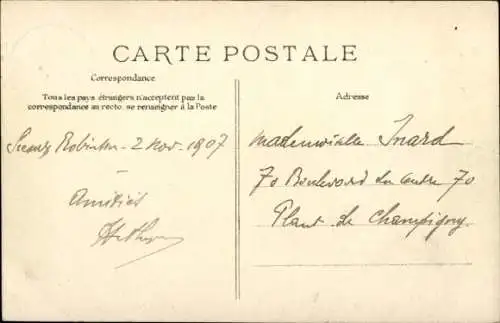 CARTE POSTALE
Correspondance
Tous les pays étrangers n'acceptent pas la
correspondance au recto, se renseigner à la Poste
Adresse
Sceaux Robinson - 2 Nov. 1907
Amitiés
Mademoiselle Inard
70 Boulevard du Centre 70
Plant de Champigny